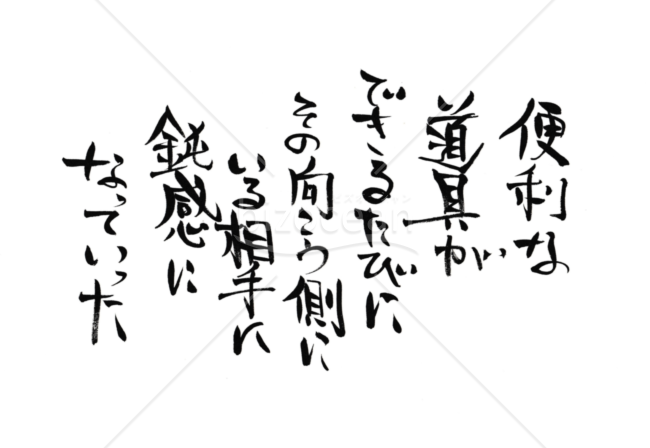 便利な
道具が
できるたびに
その向こう側に
いる相手に
鈍感に
なっていった